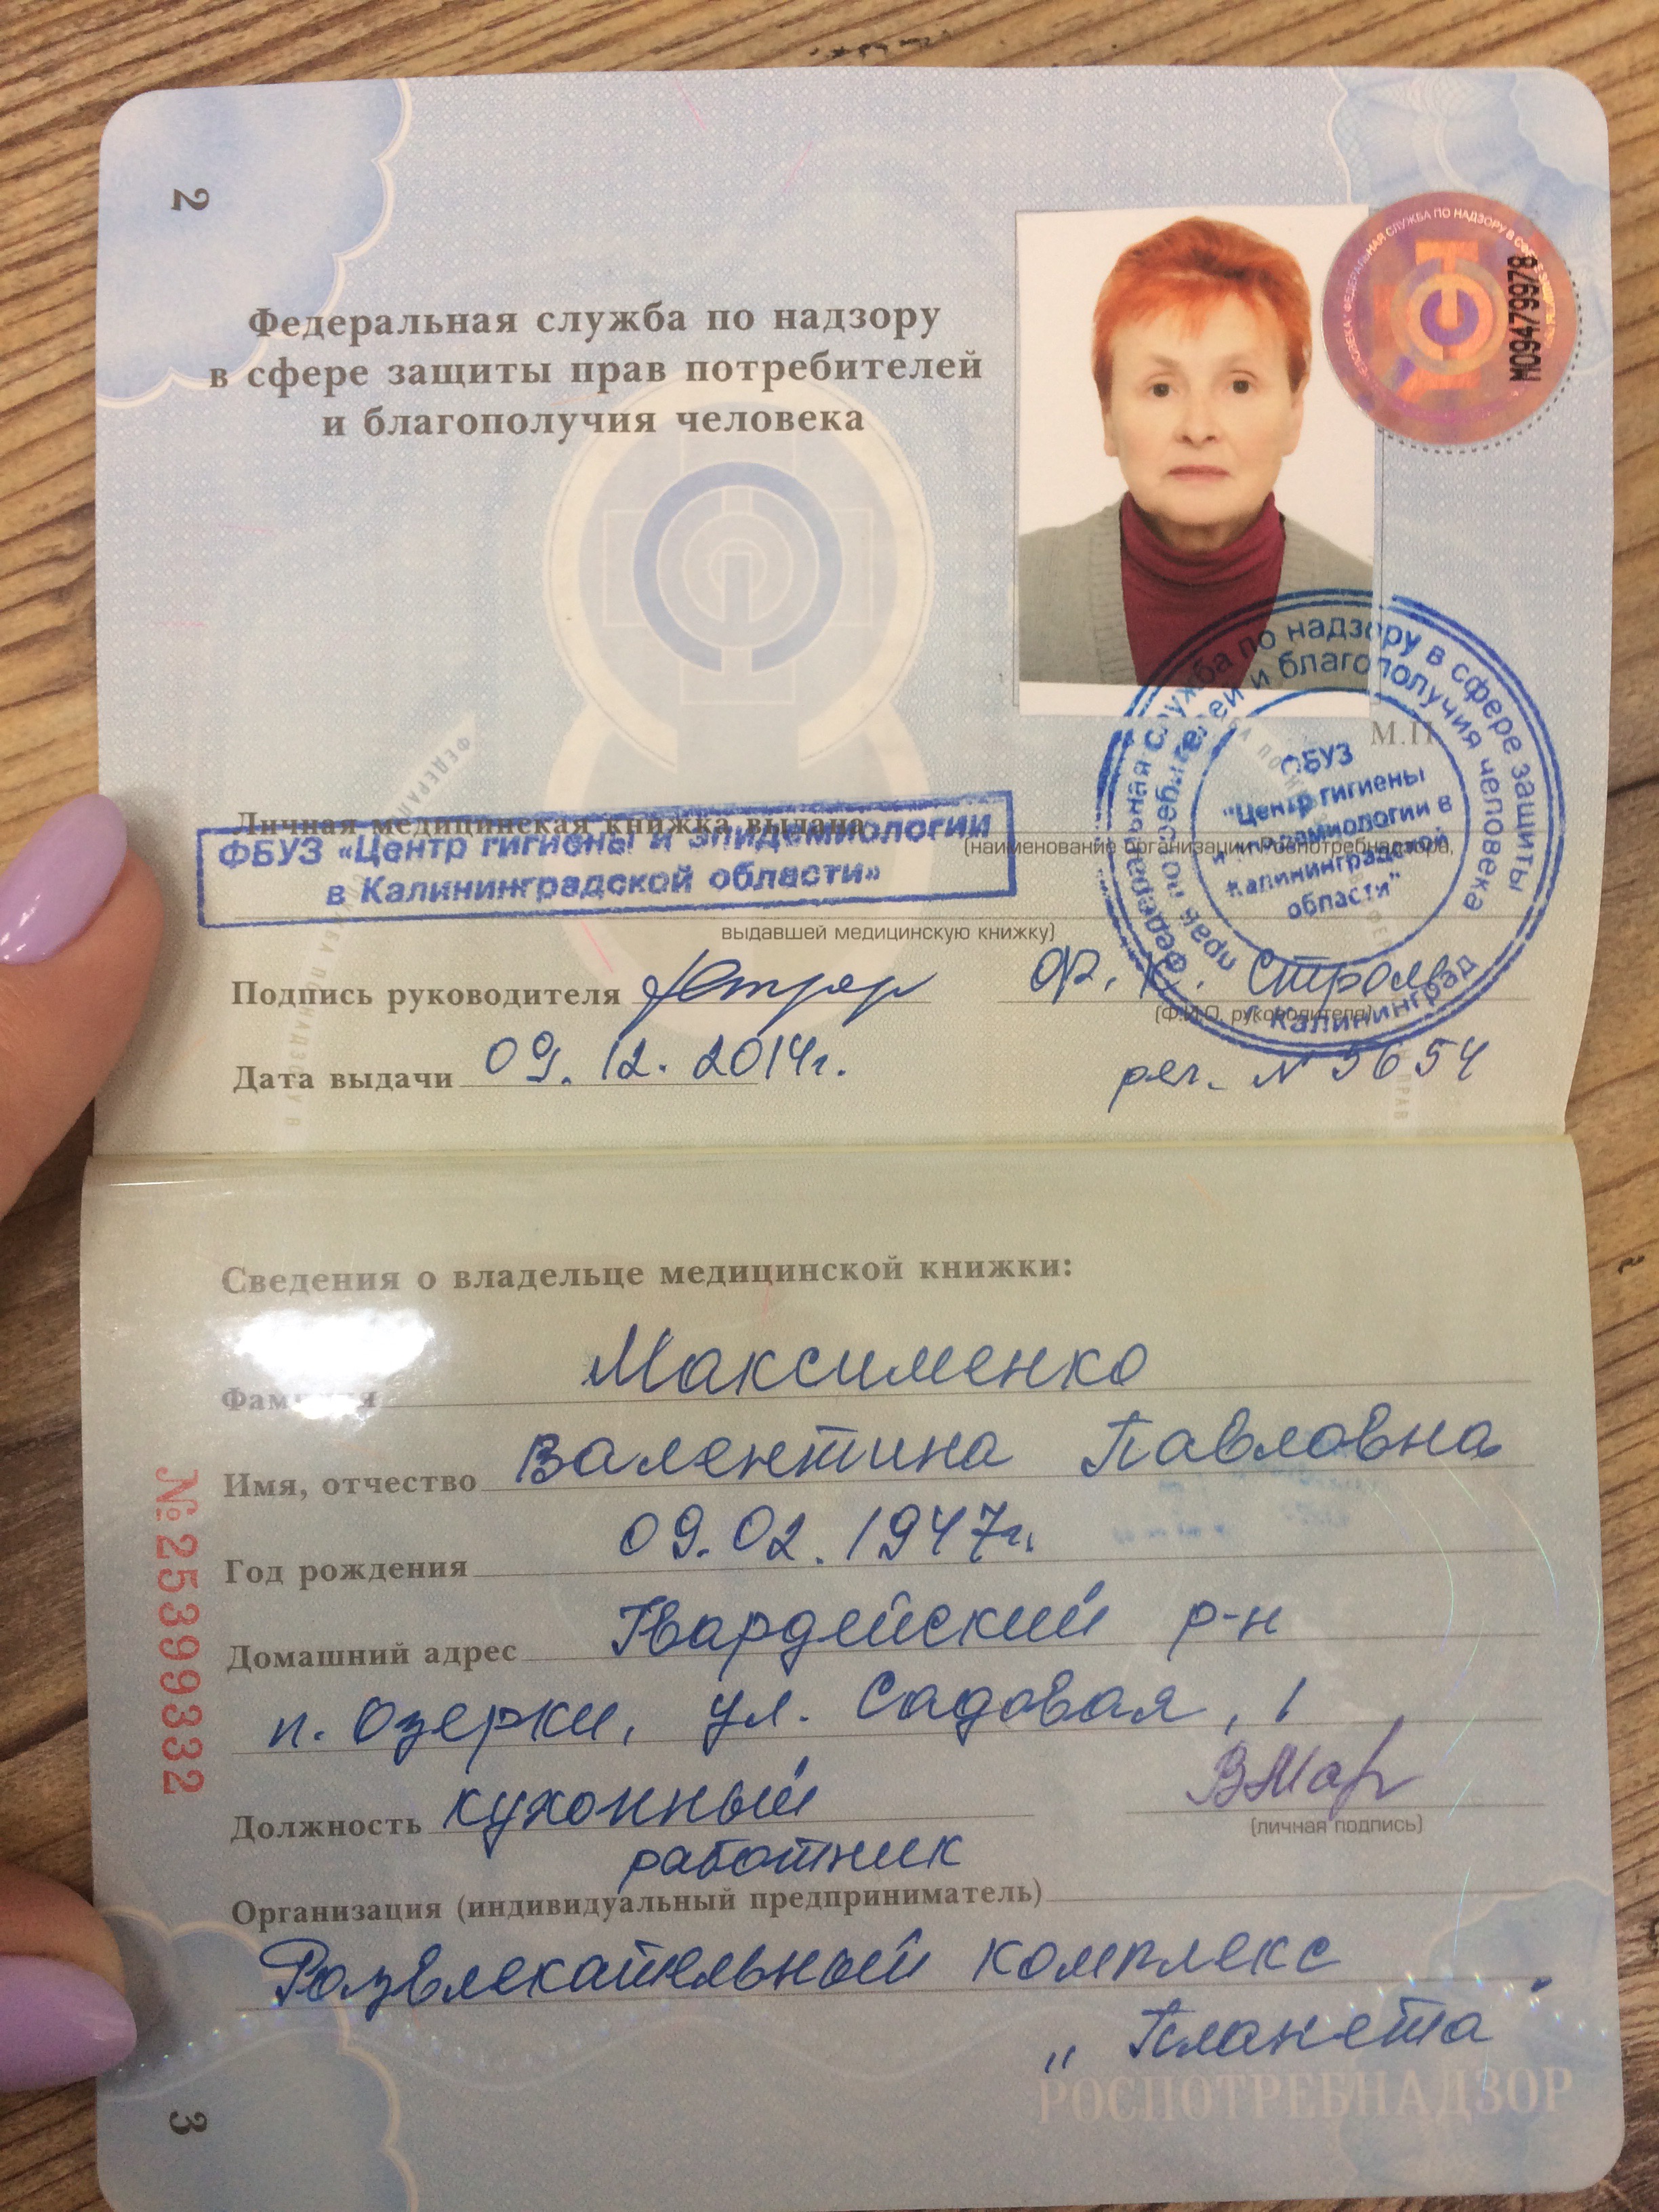 2
Федеральная служба по надзору
в сфере защиты прав потребителей
и благополучия человека
ФЕДЕРАЛЬНАЯ СЛУЖБА ПО НАДЗОРУ В СФЕРЕ
М09479978
М.П.
Федеральная служба по надзору в сфере защиты
прав потребителей и благополучия человека
ФБУЗ
"Центр гигиены
и эпидемиологии в
Калининградской
области"
г. Калининград
Личная медицинская книжка выдана
ФБУЗ «Центр гигиены и эпидемиологии
в Калининградской области»
(наименование организации Роспотребнадзора,
выдавшей медицинскую книжку)
Подпись руководителя
(Ф.И.О. руководителя)
Дата выдачи 09.12.2014г. рег. № 5654
Сведения о владельце медицинской книжки:
Фамилия Максименко
Имя, отчество Валентина Павловна
Год рождения 09.02.1947г.
Домашний адрес Гвардейский р-н
п. Озерки, ул. Садовая, 1
Должность кухонный
работник
(личная подпись)
Организация (индивидуальный предприниматель)
Развлекательный комплекс
„Планета"
РОСПОТРЕБНАДЗОР
№25399332
3